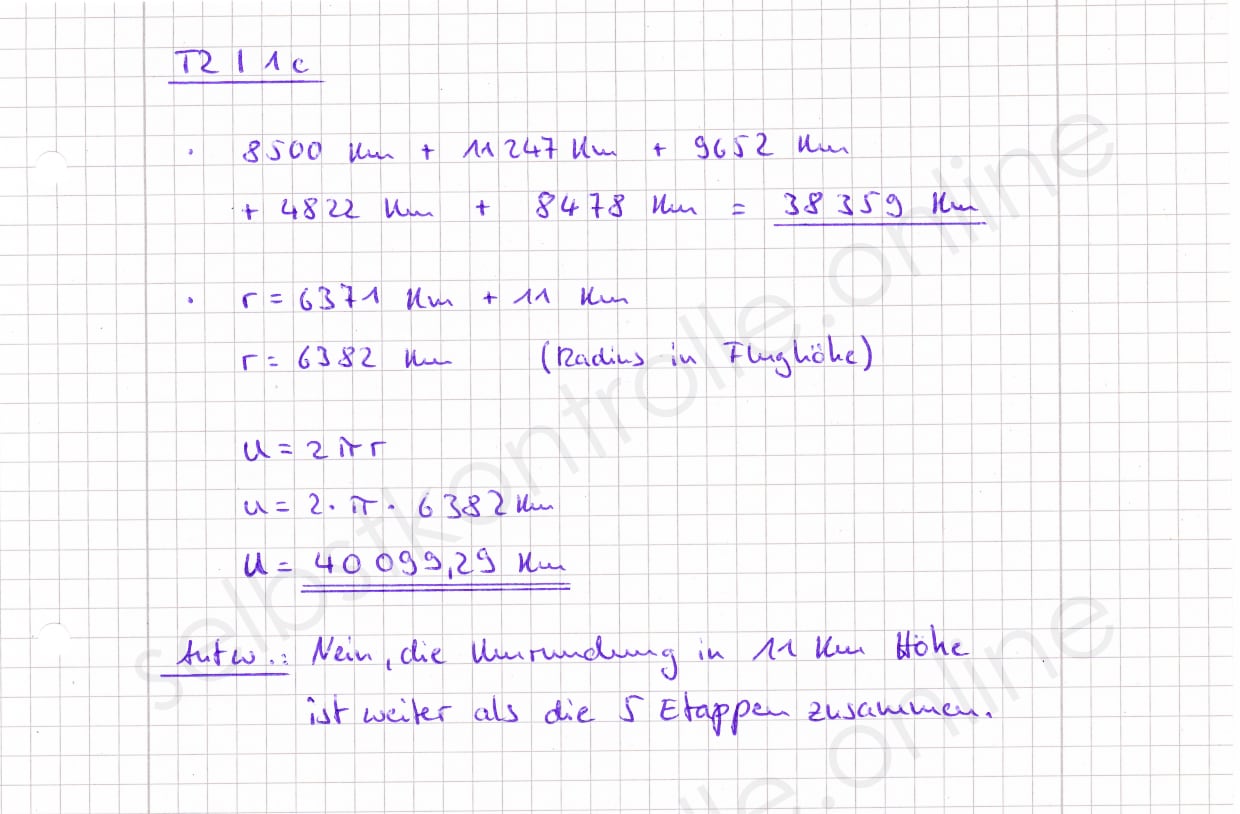 T2 | 1 c
· 8500 Km + 11 247 Km + 9652 Km
+ 4822 Km + 8478 Km = 38 359 Km
· r = 6371 Km + 11 Km
r = 6382 Km (Radius in Flughöhe)
U = 2 π r
u = 2 · π · 6382 Km
U = 40 099,29 Km
Antw.: Nein, die Umrundung in 11 Km Höhe
ist weiter als die 5 Etappen zusammen.
selbstkontrolle.online